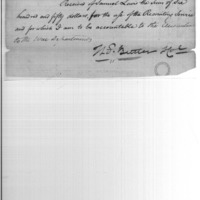 Received of Samuel Love the sum of Six
hundred and fifty dollars for the use of the Recruiting Service
and for which I am to be accountable to the
to the War Department
Th. P.